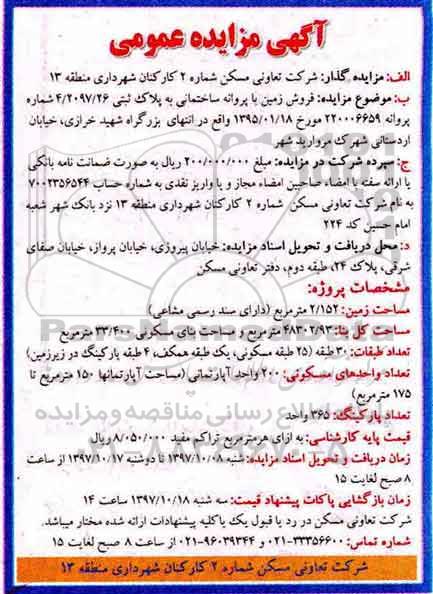 آگهی مزایده عمومی
الف: مزایده گذار: شرکت تعاونی مسکن شماره ۲ کارکنان شهرداری منطقه ۱۳
ب: موضوع مزایده: فروش زمین با پروانه ساختمانی به پلاک ثبتی ۴/۲۰۹۷/۲۶ شماره
پروانه ۲۲۰۰۰۶۶۵۹ مورخ ۱۳۹۵/۰۱/۱۸ واقع در انتهای بزرگراه شهید خرازی، خیابان
اردستانی شهرک مروارید شهر
ج: سپرده شرکت در مزایده: مبلغ ۲۰۰/۰۰۰/۰۰۰ ریال به صورت ضمانت نامه بانکی
یا ارائه سفته با امضاء صاحبین امضاء مجاز و یا واریز نقدی به شماره حساب ۷۰۰۲۳۵۶۵۴۴
به نام شرکت تعاونی مسکن شماره ۲ کارکنان شهرداری منطقه ۱۳ نزد بانک شهر شعبه
امام حسین کد ۲۲۴
د: محل دریافت و تحویل اسناد مزایده: خیابان پیروزی، خیابان پرواز، خیابان صفای
شرقی، پلاک ۲۴، طبقه دوم، دفتر تعاونی مسکن
مشخصات پروژه:
مساحت زمین: ۲/۱۵۲ مترمربع (دارای سند رسمی مشاعی)
مساحت کل بنا: ۴۸۳۰۲/۹۳ مترمربع و مساحت بنای مسکونی ۳۳/۴۰۰ مترمربع
تعداد طبقات: ۳۰ طبقه (۲۵ طبقه مسکونی، یک طبقه همکف، ۴ طبقه پارکینگ در زیرزمین)
تعداد واحدهای مسکونی: ۲۰۰ واحد آپارتمانی (مساحت آپارتمانها ۱۵۰ مترمربع تا
۱۷۵ مترمربع)
تعداد پارکینگ: ۳۶۵ واحد
قیمت پایه کارشناسی: به ازای هرمترمربع تراکم مفید ۸/۰۵۰/۰۰۰ ریال
زمان دریافت و تحویل اسناد مزایده: شنبه ۱۳۹۷/۱۰/۰۸ تا دوشنبه ۱۳۹۷/۱۰/۱۷ از ساعت
۸ صبح لغایت ۱۵
زمان بازگشایی پاکات پیشنهاد قیمت: سه شنبه ۱۳۹۷/۱۰/۱۸ ساعت ۱۴
شرکت تعاونی مسکن در رد یا قبول یک یاکلیه پیشنهادات ارائه شده مختار میباشد.
شماره تماس: ۳۳۳۵۶۶۰۰-۰۲۱ و ۹۶۰۳۹۳۴۴-۰۲۱ از ساعت ۸ صبح لغایت ۱۵
شرکت تعاونی مسکن شماره ۲ کارکنان شهرداری منطقه ۱۳